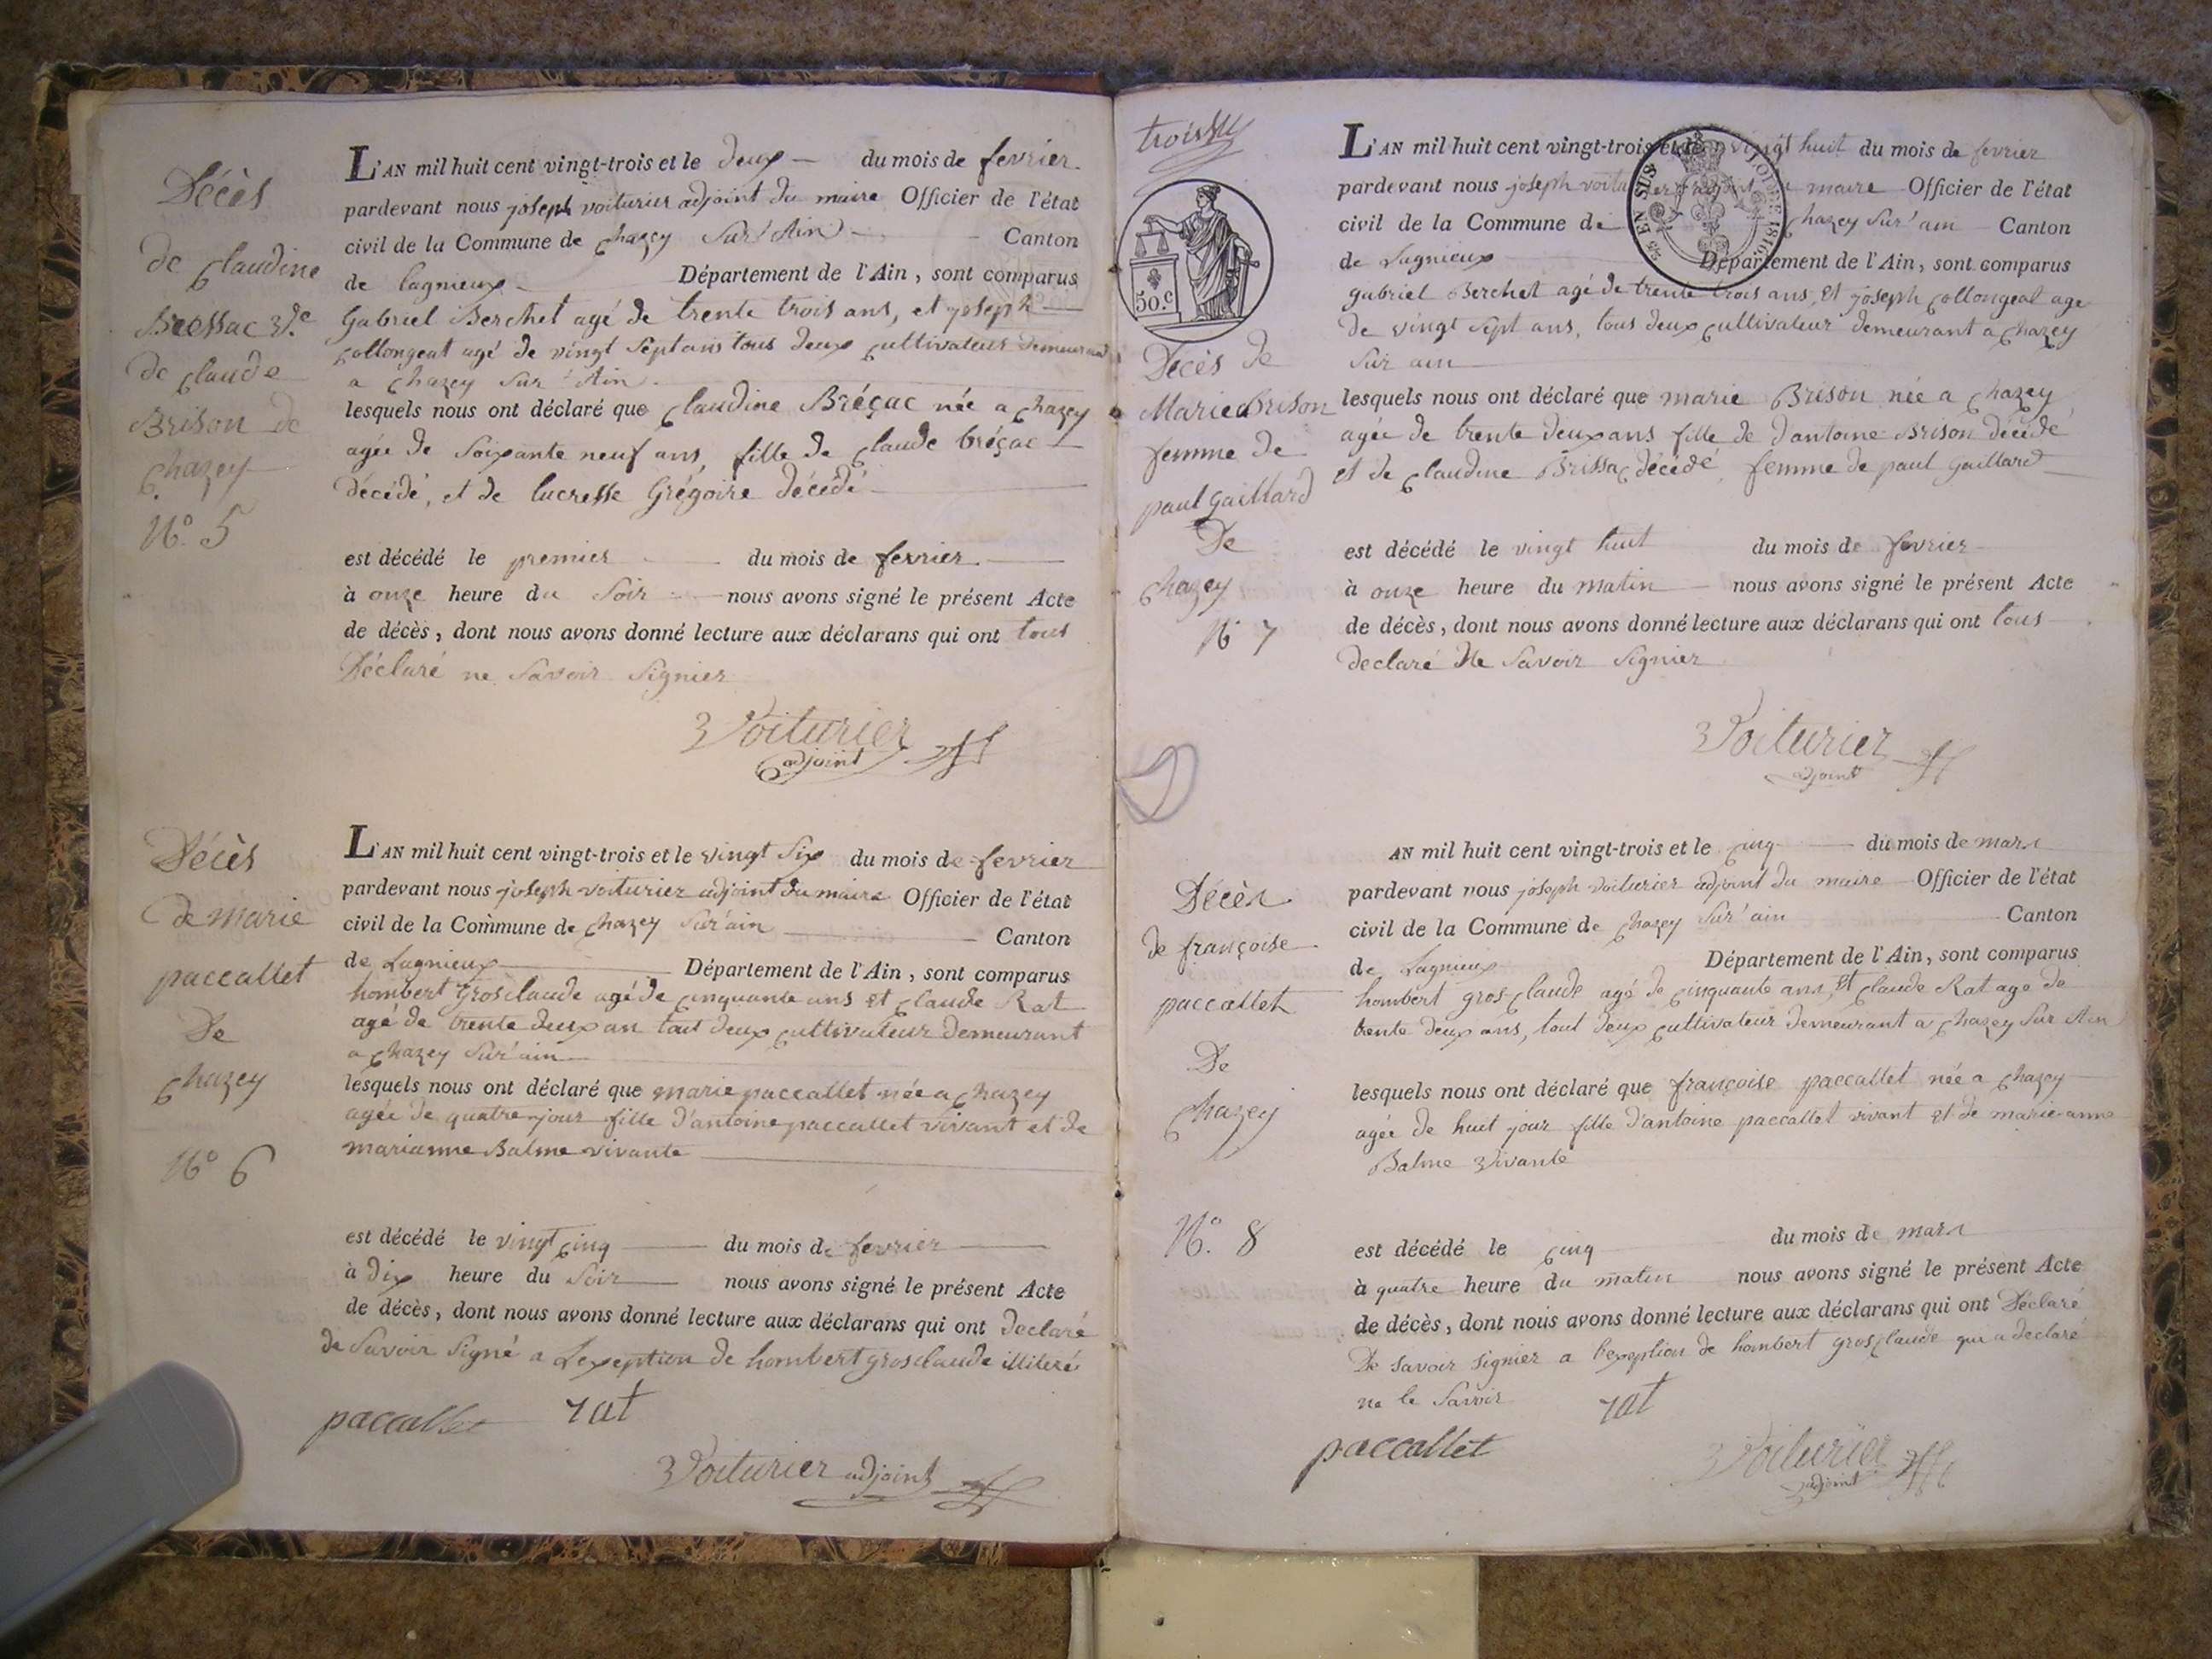 Décès
de Claudine
Bressac Ve
de Claude
Brison de
Chazey
N° 5
L'AN mil huit cent vingt-trois et le deux du mois de fevrier
pardevant nous joseph voiturier adjoint du maire Officier de l'état
civil de la Commune de Chazey Sur'Ain Canton
de lagnieux Département de l'Ain, sont comparus
Gabriel Berchet agé de trente trois ans, et joseph
Collongeat agé de vingt Sept ans tous deux Cultivateur demeurant
a Chazey Sur'Ain
lesquels nous ont déclaré que Claudine Bréçac née a Chazey
agée de Soixante neuf ans, fille de Claude bréçac
décédé, et de lucresse Grégoire décédé
est décédé le premier du mois de fevrier
à onze heure du Soir nous avons signé le présent Acte
de décès, dont nous avons donné lecture aux déclarans qui ont tous
Déclaré ne Savoir Signier
Voiturier
adjoint
Décès
de marie
paccallet
De
Chazey
N° 6
L'AN mil huit cent vingt-trois et le vingt Six du mois de fevrier
pardevant nous joseph voiturier adjoint du maire Officier de l'état
civil de la Commune de Chazey Sur'ain Canton
de Lagnieux Département de l'Ain, sont comparus
hombert Grosclaude agé de Cinquante ans et Claude Rat
agé de trente deux an tout deux Cultivateur demeurant
a Chazey Sur'ain
lesquels nous ont déclaré que marie paccallet née a Chazey
agée de quatre jour fille d'antoine paccallet vivant et de
marianne Balme vivante
est décédé le vingt Cinq du mois de fevrier
à Dix heure du Soir nous avons signé le présent Acte
de décès, dont nous avons donné lecture aux déclarans qui ont declaré
de Savoir Signé a Lexeption de hombert grosclaude illiteré
paccallet rat
Voiturier adjoint
trois
50 c.
25 EN SUS
LOI DE 1816
Décès de
Marie Brison
femme de
paul Gaillard
De
Chazey
N° 7
L'AN mil huit cent vingt-trois et le vingt huit du mois de fevrier
pardevant nous joseph voiturier adjoint du maire Officier de l'état
civil de la Commune de Chazey Sur'ain Canton
de Lagnieux Département de l'Ain, sont comparus
gabriel Berchet agé de trente trois ans, et joseph Collongeat age
de vingt Sept ans, tous deux Cultivateur demeurant a Chazey
Sur ain
lesquels nous ont déclaré que marie Brison née a Chazey
agée de trente deux ans fille de d'antoine Brison décédé
et de Claudine Brissac décédé femme de paul Gaillard
est décédé le vingt huit du mois de fevrier
à onze heure du matin nous avons signé le présent Acte
de décès, dont nous avons donné lecture aux déclarans qui ont tous
declaré Ne Savoir Signier
Voiturier
adjoint
Décès
de françoise
paccallet
De
Chazey
N° 8
AN mil huit cent vingt-trois et le Cinq du mois de mars
pardevant nous joseph voiturier adjoint du maire Officier de l'état
civil de la Commune de Chazey Sur'ain Canton
de Lagnieux Département de l'Ain, sont comparus
hombert gros Claude agé de Cinquante ans, et Claude Rat age de
trente deux ans, tout deux Cultivateur demeurant a Chazey Sur Ain
lesquels nous ont déclaré que françoise paccallet née a Chazey
agée de huit jour fille d'antoine paccallet vivant et de marie-anne
Balme Vivante
est décédé le Cinq du mois de mars
à quatre heure du matin nous avons signé le présent Acte
de décès, dont nous avons donné lecture aux déclarans qui ont Déclaré
De savoir signier a lexeption de hombert grosclaude qui a declaré
ne le Savoir
rat
paccallet
Voiturier
adjoint